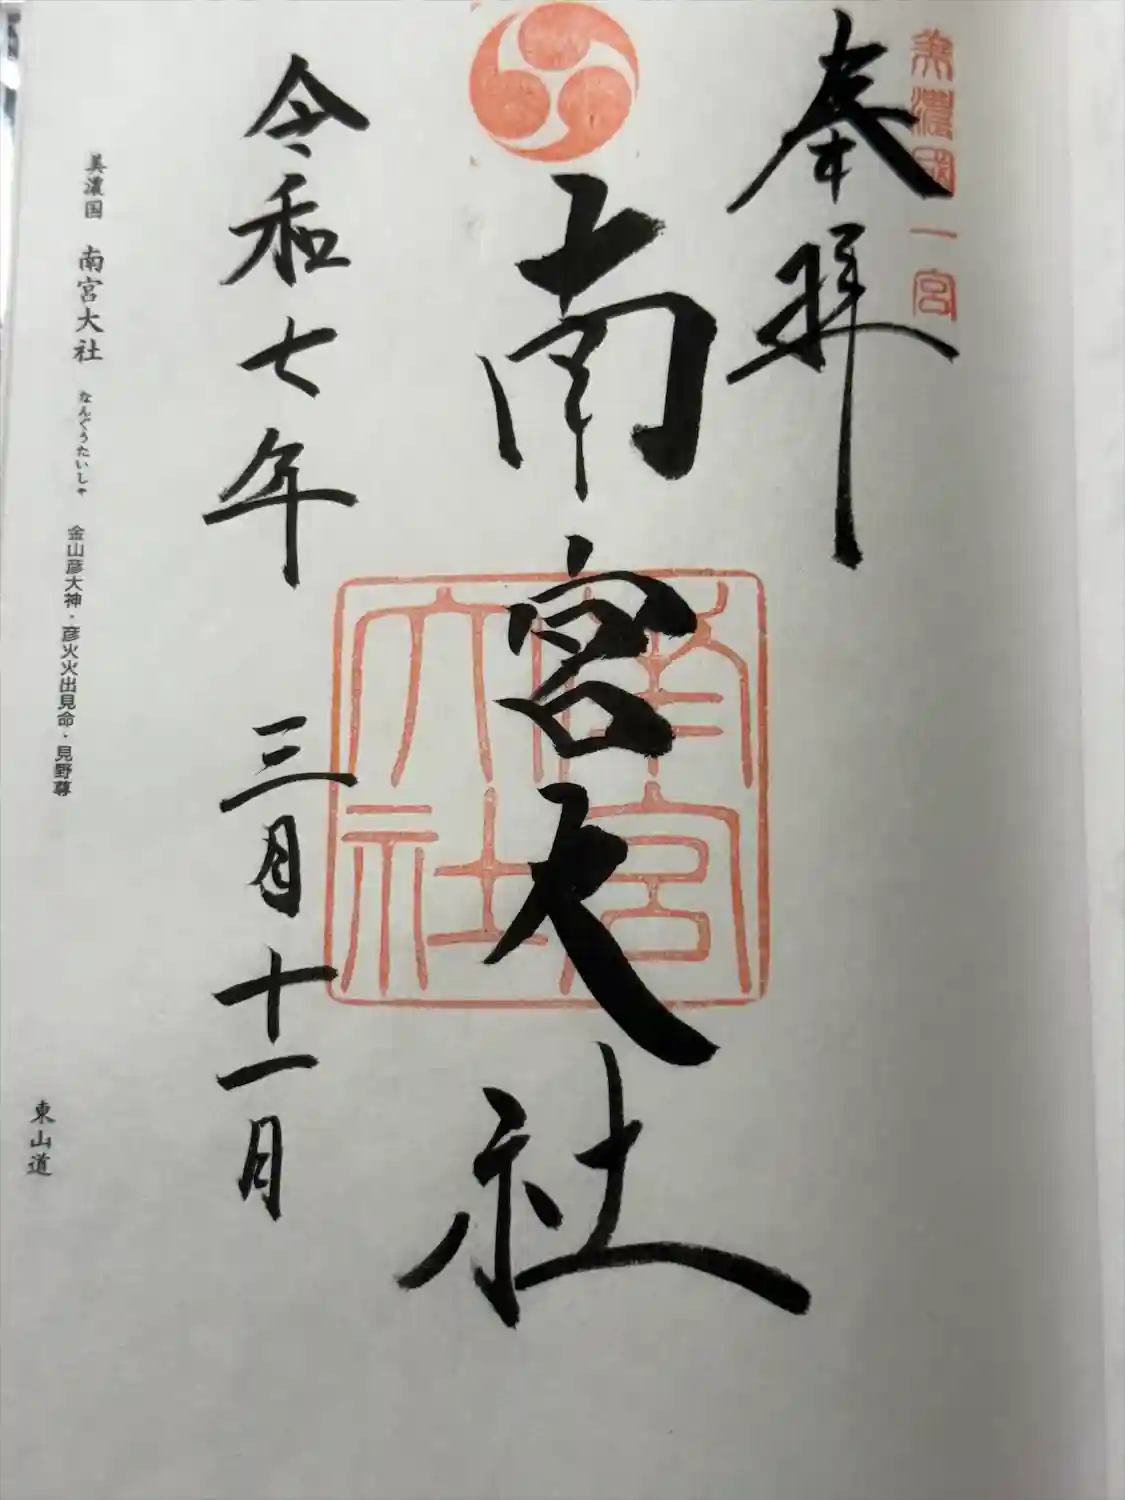 美濃國一宮
奉拝
南宮大社
南宮大社
令和七年 三月十一日
美濃国 南宮大社 なんぐうたいしゃ 金山彦大神・彦火火出見命・見野尊
東山道